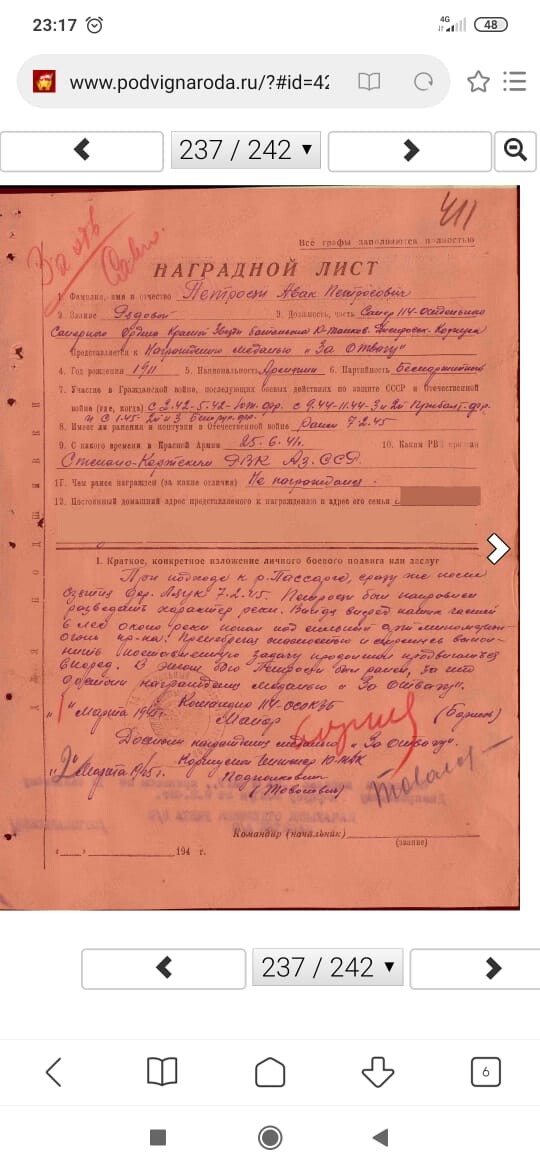 23:17
4G
48
www.podvignaroda.ru/?#id=42
237 / 242
411
За отв
Все графы заполняются полностью
НАГРАДНОЙ ЛИСТ
1. Фамилия, имя и отчество Петросян Авак Петросович
2. Звание Рядовой 3. Должность, часть Сапер 114 Отдельного
Саперного ордена Красной Звезды батальона 10 танков. Днепровск. Корпуса
Представляется к Награждению медалью „За Отвагу"
4. Год рождения 1911 5. Национальность Армянин 6. Партийность Беспартийный
7. Участие в Гражданской войне, последующих боевых действиях по защите СССР и Отечественной
войне (где, когда) С 2.42-5.42- Юж. фр. с 9.44-11.44- 3 и 2й Прибалт. фр.
и с 1.45- 2й и 3 Белорус. фр.
8. Имеет ли ранения и контузии в Отечественной войне Ранен 7.2.45
9. С какого времени в Красной Армии 25.6.41г. 10. Каким РВК призван
РВК Аз. ССР.
11. Чем ранее награжден (за какие отличия) Не награждался.
12. Постоянный домашний адрес представляемого к награждению и адрес его семьи
I. Краткое, конкретное изложение личного боевого подвига или заслуг
При подходе к р. Пассарге, сразу же после
взятия дер. 7.2.45. Петросян был направлен
разведать характер реки. Выйдя вперед наших частей
в лес около реки попал под сильный
огонь пр-ка. Пренебрегая опасностью и стремясь выпол-
нить поставленную задачу продолжал продвигаться
вперед. В этом бою Петросян был ранен, за что
достоин награждения медалью „За Отвагу".
Командир 114 ОСОКЗБ
„1" Марта 1945г. Майор
Достоин награждения медалью „За Отвагу".
Корпусной Инженер 10 ТДК
„2" Марта 1945г. Подполковник
Командир (начальник)
(звание)
„ " 194 г.
237 / 242
6